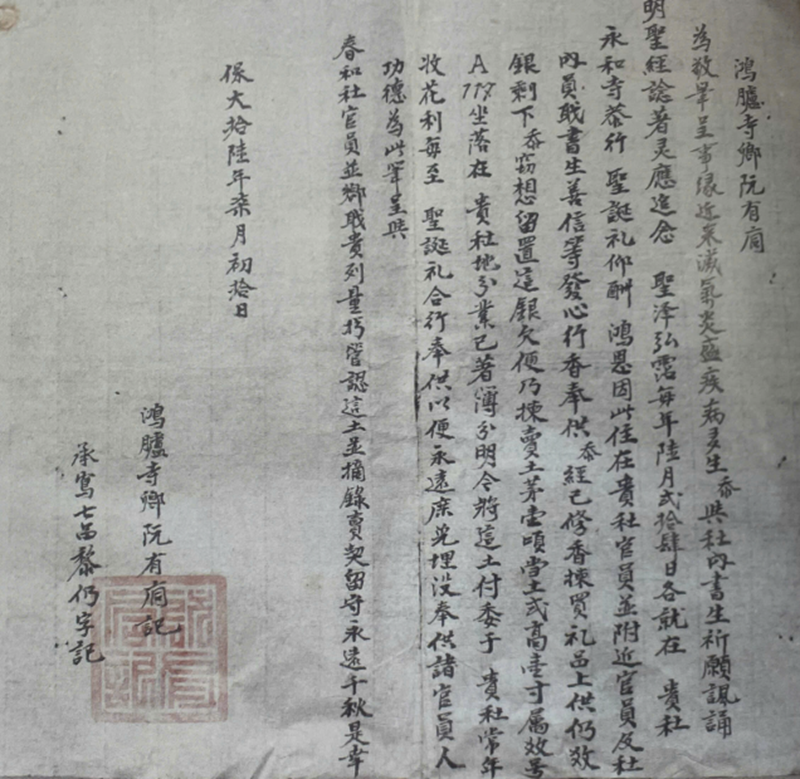 鴻臚寺卿阮有𢊄
為敬畢呈事緣近來瀛氣炎瘟疾病多生忝與社內書生祈願諷誦
明聖經諗著灵應迨念 聖泽弘霑每年陸月弍拾肆日各就在 貴社
永和寺恭行 聖誕礼仰酬 鴻恩因此住在貴社官員並附近官員及社
內員戝書生善信等發心行香奉供忝經已修香揀買礼品上供仍效
銀剩下忝窃想留置這銀欠便乃揀賣土茅壹頃當土弍高壹寸属效号
A 117坐落在 貴社地分業已著簿分明今將這土付委于 貴社常年
收花利每至 聖誕礼合行奉供以便永遠庶免埋没奉供諸官員人
功德為此单呈與
春和社官員並鄉戝貴列量㧣管認這土並摘錄賣契留守永遠千秋是幸
保大拾陸年柒月初拾日
鴻臚寺卿阮有記
承寫七品黎仍字記